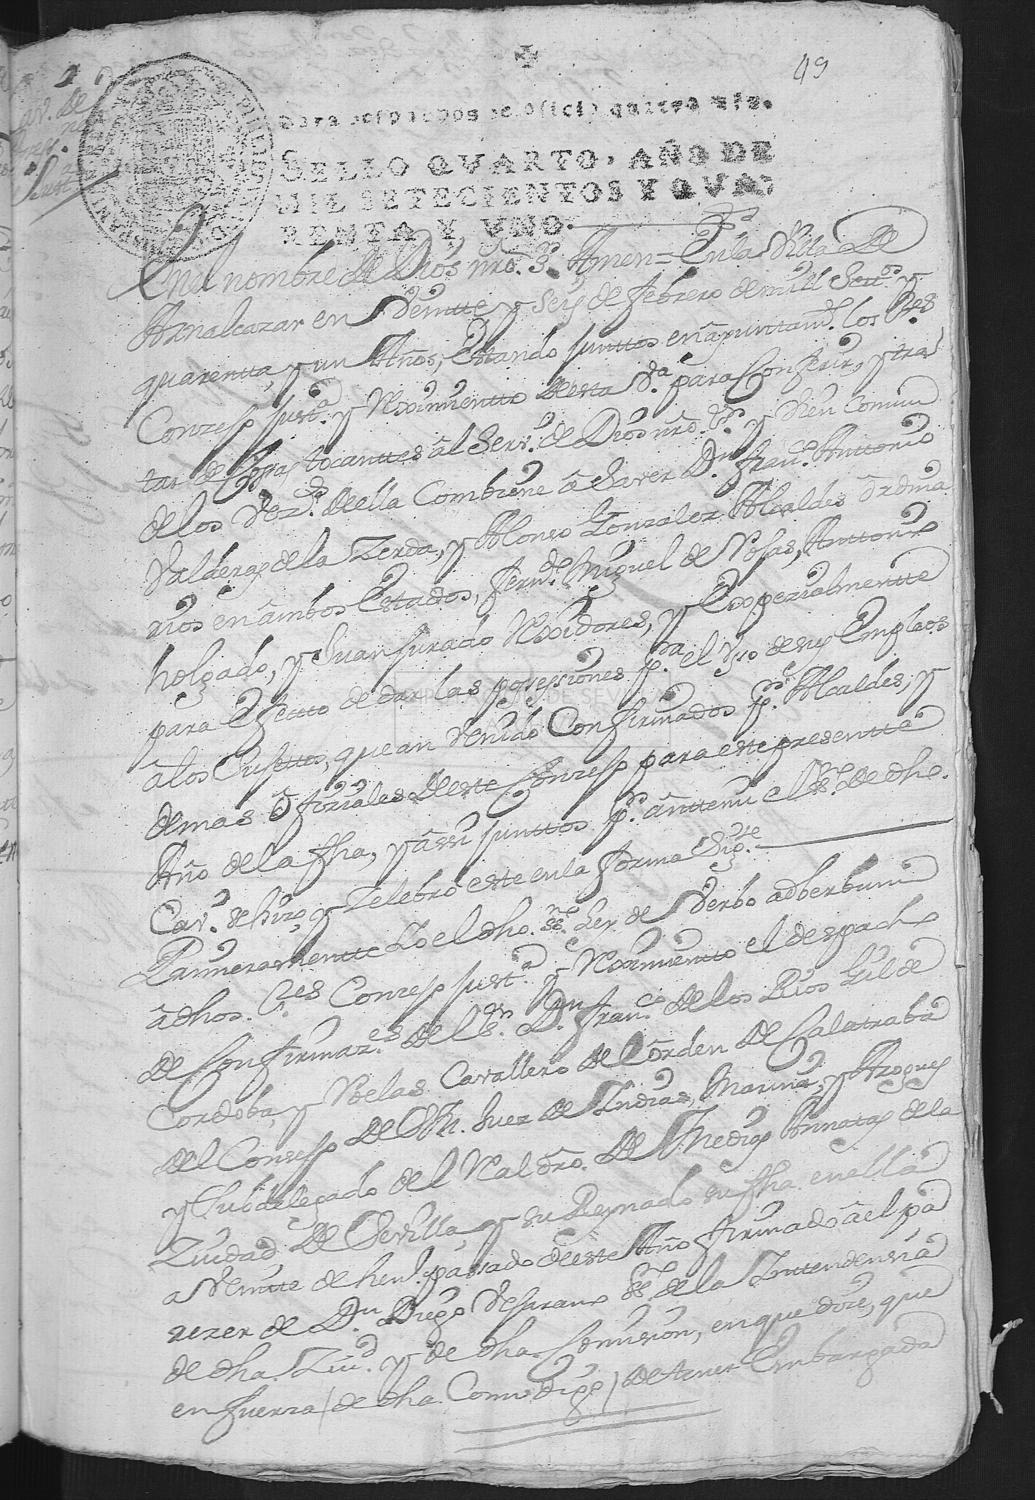 49
para despachos de oficio quatro mrs.
SELLO QVARTO, AÑO DE
MIL SETECIENTOS Y QUA-
RENTA Y UNO.
En el nombre de Dios nro. Sr. Amen = En la Villa de
Asnalcazar en Veintte y Seis de febrero de mill Settos. y
quarentta, y un Años, Estando junttos en ayuntamto. los Sres.
Conzejo Justa. y Reximientto desta Va. para Conferir, y tra
tar de Cosas tocanttes al Serv. de Dios nro. Sr. y vien comun
de los Vezos. della Combiene a Saver Dn. Franco. Anttonio
Valderas de la Zerda, y Alonso Gonzalez Alcaldes ordina
rios en ambos Estados, Fernando Miguel de Rosas, Anttonio
holgado, y Juan Jurado Rexidores, y Expezialmentte
para Efectto de dar las possessiones pa. el Uso de sus Empleos
a los Sujettos, que an Venido Confirmados pr. Alcaldes, y
demas ofiziales deste Conzejo para este presentte
Año de la fha, y assi junttos pr. antte mi el Sno. de dho.
Cavo. se hizo, y Zelebro este en la forma Sigte.
Primeramentte Yo el dho. Sno. Ley de Verbo adberbum
a dhos. Sres. Conzejo Justa. y Reximientto el despacho
de Confirmazes. del Sr. Dn. Franco. de los Rios Gil de
Cordoba, y Velas Cavallero del orden de Calatraba
del Consejo de S.M. Juez de Indias, Marina, y Azogues
y Subdelegado del Real dro. de Medias Annatas de la
Ziudad de Sevilla, y su Reynado su fha. en ella
a Veintte de heno. passado deste Año firmado a el pa
rezer de Dn. Diego Serrano Sno. de la Intendensia
de dha. Ziud. y de dha Comision, en que dize, que
en fuerza de dha Comon. de tener Embargada